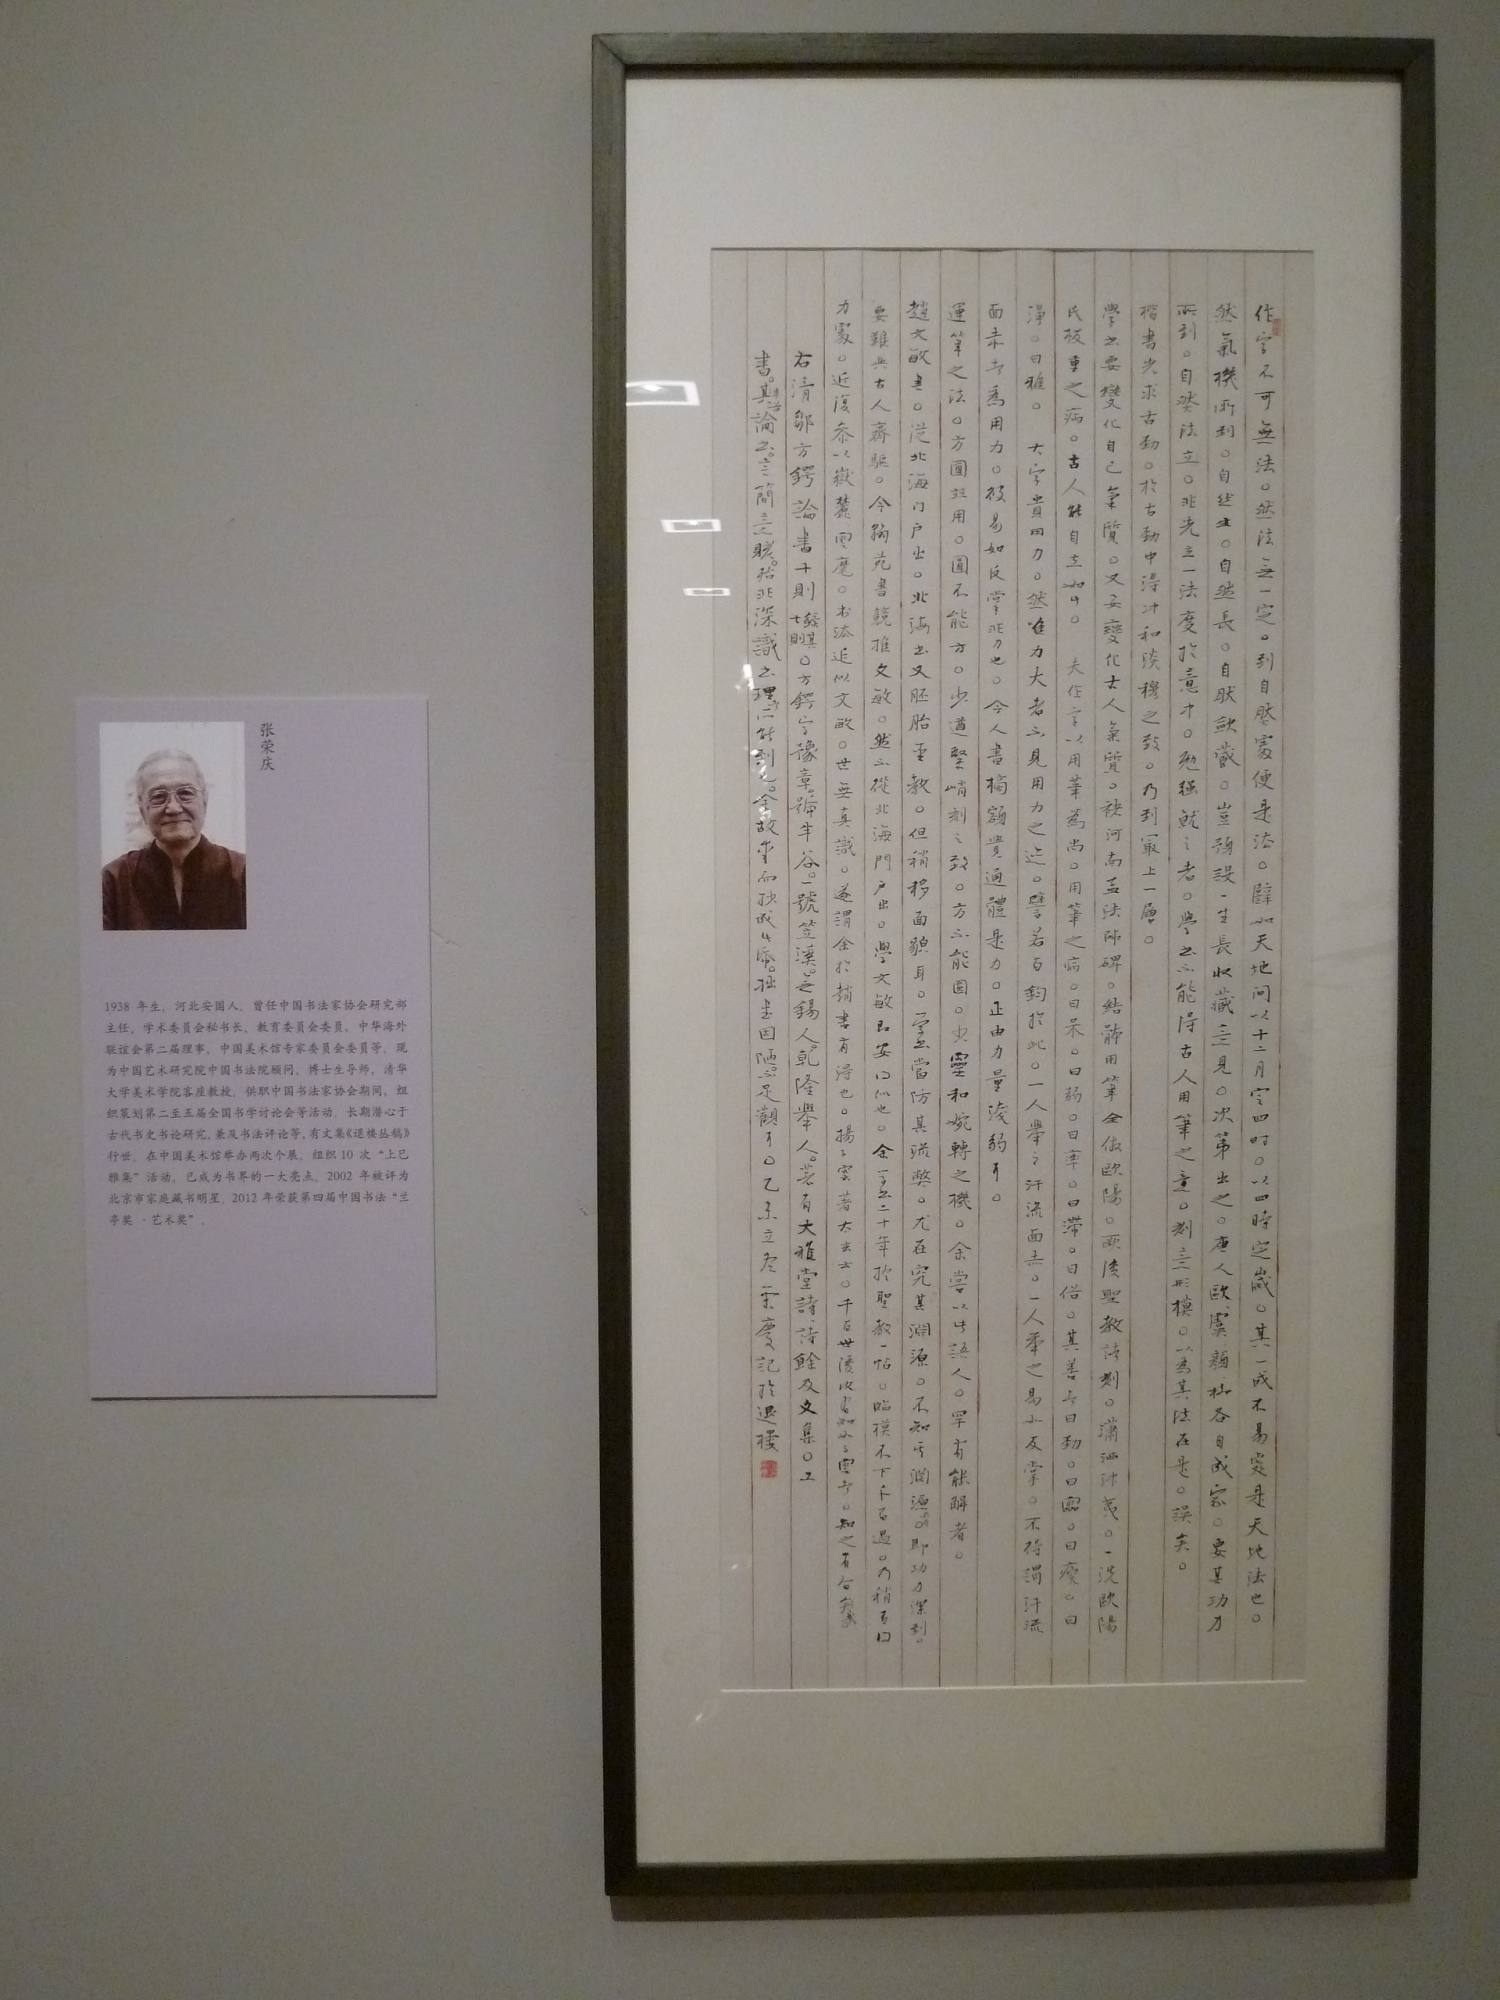 张荣庆
1938 年生，河北安国人。曾任中国书法家协会研究部
主任，学术委员会秘书长、教育委员会委员，中华海外
联谊会第二届理事，中国美术馆专家委员会委员等，现
为中国艺术研究院中国书法院顾问，博士生导师，清华
大学美术学院客座教授。供职中国书法家协会期间，组
织策划第二至五届全国书学讨论会等活动。长期潜心于
古代书史书论研究，兼及书法评论等，有文集《退楼丛稿》
行世。在中国美术馆举办两次个展。组织 10 次“上巳
雅集”活动，已成为书界的一大亮点。2002 年被评为
北京市家庭藏书明星。2012 年荣获第四届中国书法“兰
亭奖 · 艺术奖”。
作字不可無法。然法無一定。到自然處便是法。譬如天地间以十二月定四时。以四時定歲。其一成不易處是天地法也。
然氣機所到。自然生。自然長。自然斂藏。豈預設一生長收藏之見。次第出之。唐人歐虞顏柳各自成家。要其功力
所到。自然法立。非先立一法度於意中。勉强就之者。學書不能得古人用筆之意。刻意形模。以為其法在是。誤矣。
楷書先求古勁。於古勁中得冲和淡穆之致。乃到最上一層。
學書要變化自己氣質。又要變化古人氣質。褚河南孟法师碑。結體用筆全倣歐陽。而後聖教諸刻。瀟洒冲夷。一洗歐陽
氏板重之病。古人能自立如此。 夫作字以用筆為尚。用筆之病。曰呆。曰弱。曰率。曰滞。曰俗。其善者曰勁。曰圓。曰瘦。曰
淨。曰雅。 大字貴用力。然唯力大者不見用力之迹。譬若百鈞於此。一人舉之汗流面赤。一人舉之易如反掌。不得謂汗流
面赤者為用力。彼易如反掌非力也。今人書楄額貴通體是力。正由力量淺弱耳。
運筆之法。方圓並用。圓不能方。少遒堅峭刻之致。方不能圓。少靈和婉轉之機。余嘗以此語人。罕有能解者。
趙文敏書。從北海门户出。北海書又胚胎聖教。但稍移面貌耳。學書當防其流弊。尤在究其淵源。不知其淵源所自。即功力深到。
要難與古人齊驅。今翰苑書競推文敏。然不從北海門户出。學文敏即安得似也。余三二十年於聖教一帖。臨摸不下千百過。乃稍有得
力處。近復參以嶽麓雲麾。书法近似文敏。世無真識。遂謂余於趙書有得也。揚子雲著太玄云。千百世後必有知如子雲者。知之者合
右清鄒方鍔論書十則。方鍔字豫章。號半谷。一號笠溪。無錫人。乾隆舉人。著有大雅堂詩、詩餘及文集。工
書。其論書言簡意賅。殆非深識書理者不能到也。余故愛而抄成此帋。拙書固陋不足觀耳。乙未立冬 榮慶記於退樓